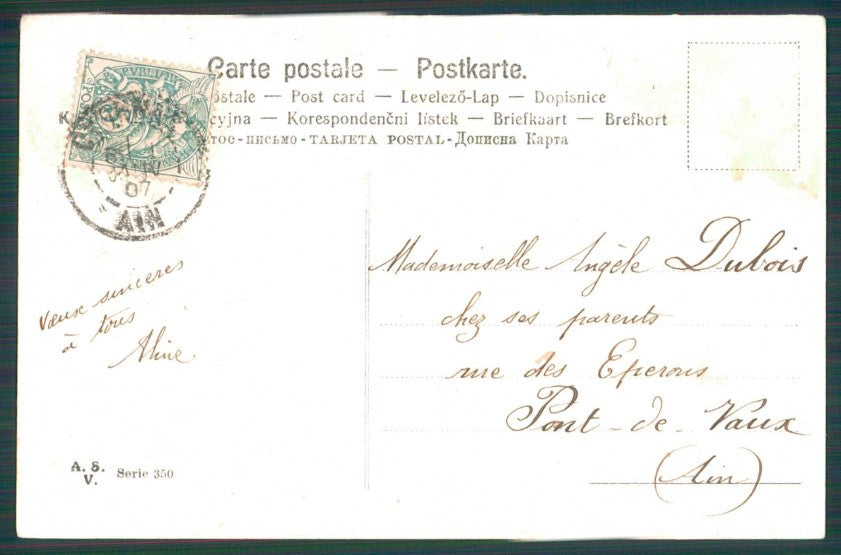 Carte postale — Postkarte.
— Post card — Levelező-Lap — Dopisnice
— Korespondenčni lístek — Briefkaart — Brefkort
TARJETA POSTAL-Дописна Карта
PUBLIQUE
07
AIN
Mademoiselle Angèle Dubois
chez ses parents
rue des Eperons
Pont-de-Vaux
(Ain)
Vœux sincères
à tous
Aline
A. S.
V. Serie 350